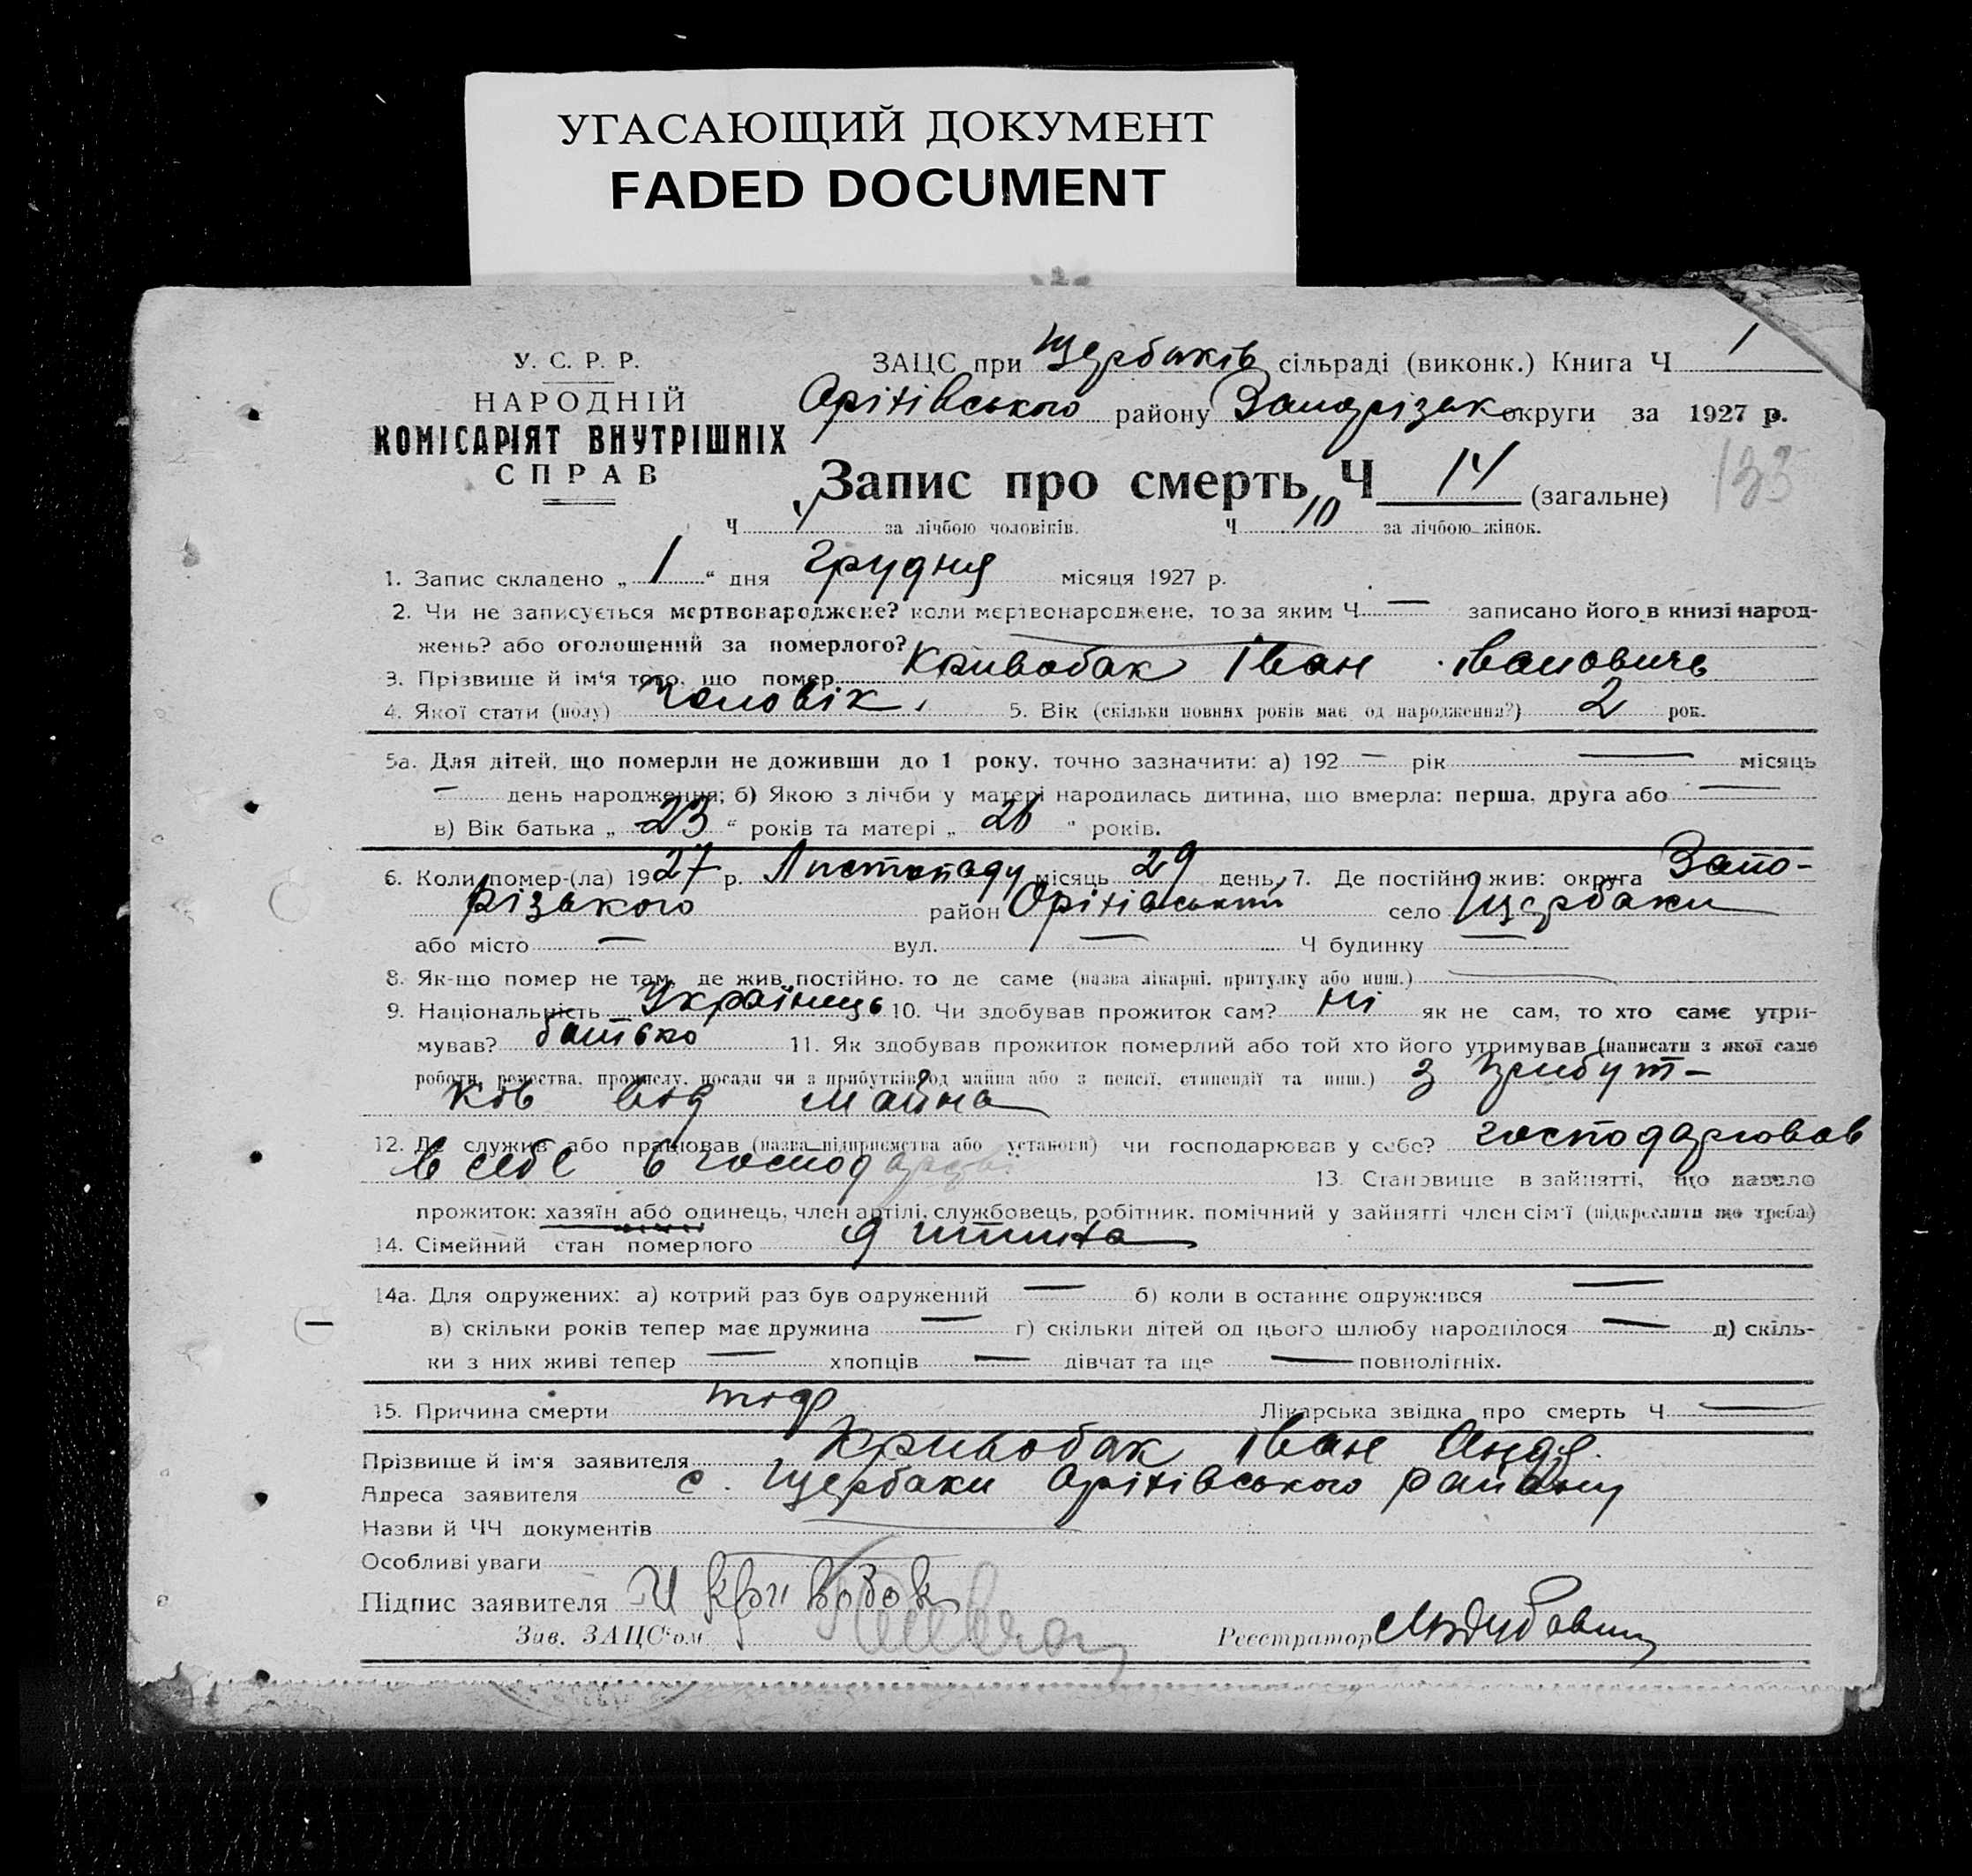 УГАСАЮЩИЙ ДОКУМЕНТ
FADED DOCUMENT
У. С. Р. Р.
НАРОДНІЙ
КОМІСАРІЯТ ВНУТРІШНІХ
СПРАВ
ЗАЦС при Щербаків сільраді (виконк.) Книга Ч 1
Оріхівського району Запорізьк округи за 1927 р.
Запис про смерть Ч 14 (загальне)
133
Ч за лічбою чоловіків. Ч 10 за лічбою жінок.
1. Запис складено „ 1 “ дня грудня місяця 1927 р.
2. Чи не записується мертвонароджене? коли мертвонароджене, то за яким Ч — записано його в книзі народ-
жень? або оголошений за померлого?
3. Прізвище й ім'я того, що помер Кривобак Іван Іванович
4. Якої стати (полу) Чоловік. 5. Вік (скільки повних років має од народження?) 2 рок.
5а. Для дітей, що померли не доживши до 1 року, точно зазначити: а) 192 — рік — місяць
— день народження; б) Якою з лічби у матері народилась дитина, що вмерла: перша, друга або —
в) Вік батька „ 23 “ років та матері „ 26 “ років.
6. Коли помер-(ла) 1927 р. Листопаду місяць 29 день, 7. Де постійно жив: округа Запо-
різького район Оріхівський село Щербаки
або місто — вул. — Ч будинку —
8. Як-що помер не там, де жив постійно, то де саме (назва лікарні, притулку або инш.) —
9. Національність Українець 10. Чи здобував прожиток сам? Ні як не сам, то хто саме утри-
мував? батько 11. Як здобував прожиток померлий або той хто його утримував (написати з якої саме
роботи, ремества, промислу, посади чи з прибутків од майна або з пенсії, стипендії та инш.) З прибут-
ков від майна
12. Де служив або працював (назва підприємства або установи) чи господарював у себе? господарював
в себе в господарстві
13. Становище в зайнятті, що давало
прожиток: хазяїн або одинець, член артілі, службовець, робітник, помічний у зайнятті член сім'ї (підкреслити що треба)
14. Сімейний стан померлого дитина
14а. Для одружених: а) котрий раз був одружений — б) коли в останнє одружився —
в) скільки років тепер має дружина — г) скільки дітей од цього шлюбу народилося — д) скіль-
ки з них живі тепер — хлопців — дівчат та ще — повнолітніх.
15. Причина смерти тиф Лікарська звідка про смерть Ч —
Прізвище й ім'я заявителя Кривобак Іван Андр.
Адреса заявителя с. Щербаки Оріхівського району
Назви й ЧЧ документів —
Особливі уваги —
Підпис заявителя И Кривобок
Зав. ЗАЦС'ом
Реєстратор